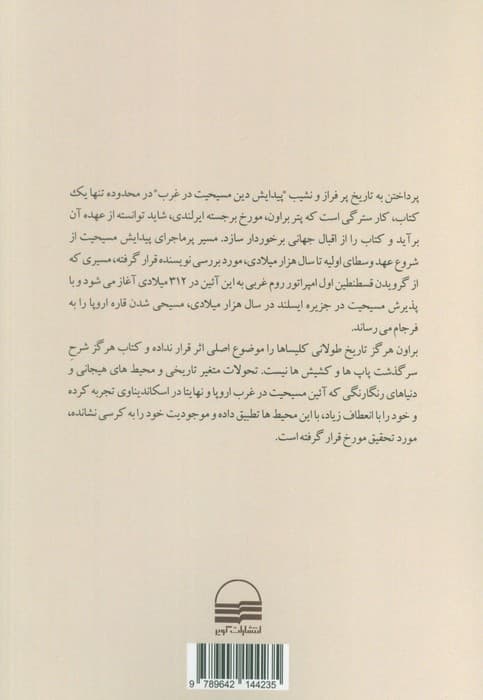 پرداختن به تاریخ پر فراز و نشیب "پیدایش دین مسیحیت در غرب" در محدوده تنها یک
کتاب، کار سترگی است که پتر براون، مورخ برجسته ایرلندی، شاید توانسته از عهده آن
برآید و کتاب را از اقبال جهانی برخوردار سازد. مسیر پرماجرای پیدایش مسیحیت از
شروع عهد وسطای اولیه تا سال هزار میلادی، مورد بررسی نویسنده قرار گرفته، مسیری که
از گرویدن قسطنطین اول امپراتور روم غربی به این آئین در ۳۱۲ میلادی آغاز می شود و با
پذیرش مسیحیت در جزیره ایسلند در سال هزار میلادی، مسیحی شدن قاره اروپا را به
فرجام می رساند.
براون هرگز تاریخ طولانی کلیساها را موضوع اصلی اثر قرار نداده و کتاب هرگز شرح
سرگذشت پاپ ها و کشیش ها نیست. تحولات متغیر تاریخی و محیط های هیجانی و
دنیاهای رنگارنگی که آئین مسیحیت در غرب اروپا و نهایتا در اسکاندیناوی تجربه کرده
و خود را با انعطاف زیاد، با این محیط ها تطبیق داده و موجودیت خود را به کرسی نشانده،
مورد تحقیق مورخ قرار گرفته است.
انتشارات کویر
9 789642 144235